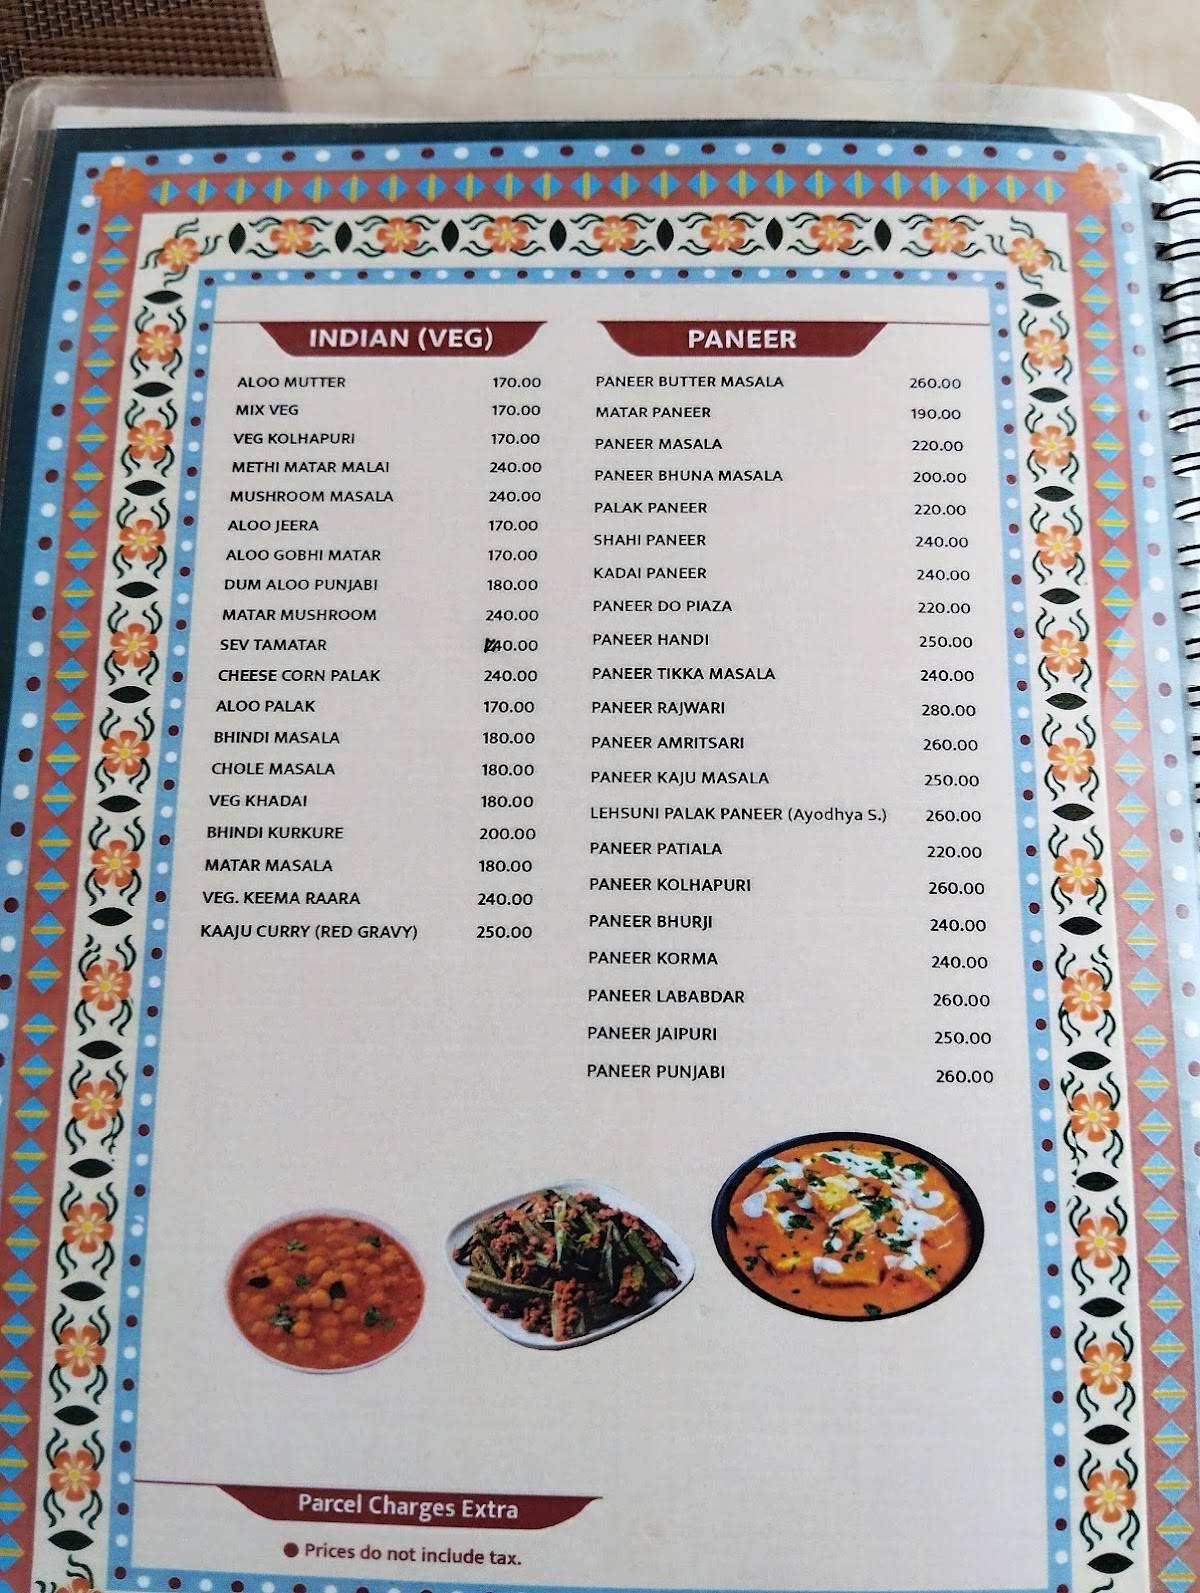 INDIAN (VEG)
ALOO MUTTER 170.00
MIX VEG 170.00
VEG KOLHAPURI 170.00
METHI MATAR MALAI 240.00
MUSHROOM MASALA 240.00
ALOO JEERA 170.00
ALOO GOBHI MATAR 170.00
DUM ALOO PUNJABI 180.00
MATAR MUSHROOM 240.00
SEV TAMATAR
CHEESE CORN PALAK 240.00
ALOO PALAK 170.00
BHINDI MASALA 180.00
CHOLE MASALA 180.00
VEG KHADAI 180.00
BHINDI KURKURE 200.00
MATAR MASALA 180.00
VEG. KEEMA RAARA 240.00
KAAJU CURRY (RED GRAVY) 250.00
PANEER
PANEER BUTTER MASALA 260.00
MATAR PANEER 190.00
PANEER MASALA 220.00
PANEER BHUNA MASALA 200.00
PALAK PANEER 220.00
SHAHI PANEER 240.00
KADAI PANEER 240.00
PANEER DO PIAZA 220.00
PANEER HANDI 250.00
PANEER TIKKA MASALA 240.00
PANEER RAJWARI 280.00
PANEER AMRITSARI 260.00
PANEER KAJU MASALA 250.00
LEHSUNI PALAK PANEER (Ayodhya S.) 260.00
PANEER PATIALA 220.00
PANEER KOLHAPURI 260.00
PANEER BHURJI 240.00
PANEER KORMA 240.00
PANEER LABABDAR 260.00
PANEER JAIPURI 250.00
PANEER PUNJABI 260.00
Parcel Charges Extra
Prices do not include tax.